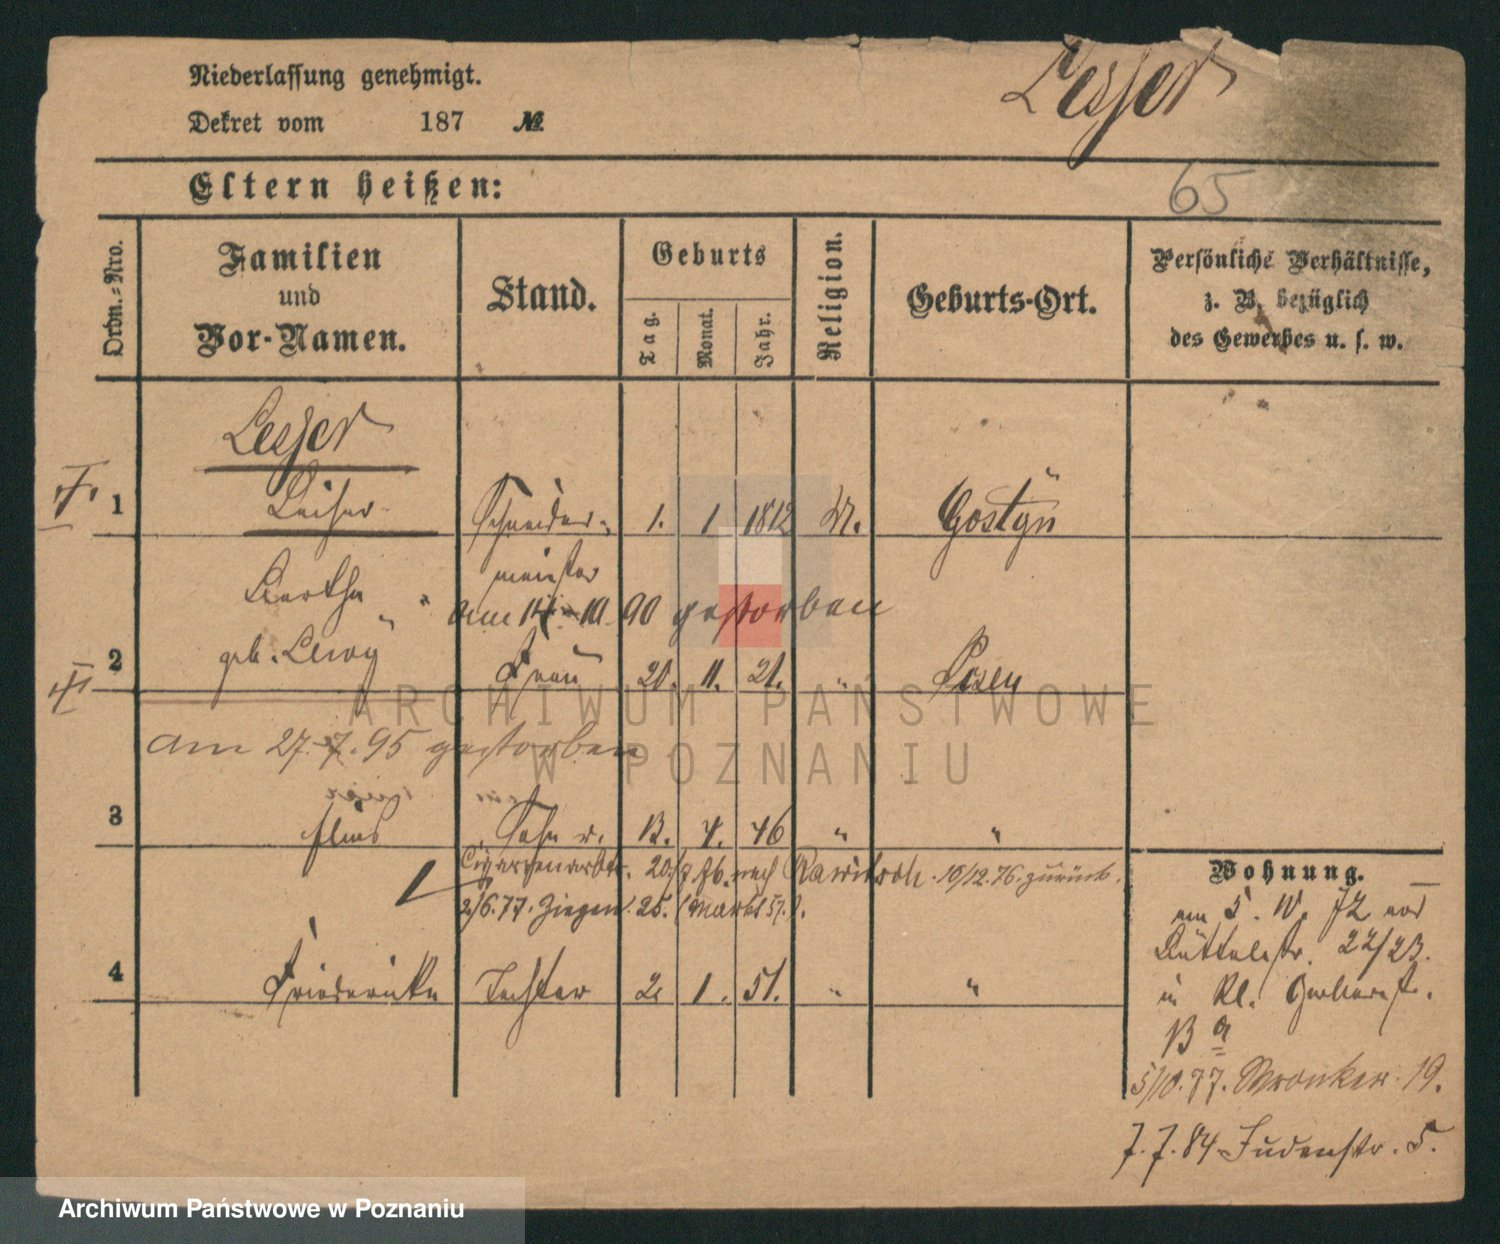 Niederlassung genehmigt.
Lesser
Dekret vom 187 №
Eltern heißen:
65
Ordn.-Nro.
Familien
und
Vor-Namen.
Stand.
Geburts
Tag.
Monat.
Jahr.
Religion.
Geburts-Ort.
Persönliche Verhältnisse,
z. B. bezüglich
des Gewerbes u. s. w.
Lesser
1 Leiser Schneider- 1. 1 1812 M. Gostyn
meister
Bertha "
am 14 10 90 gestorben
2 geb. Lewy Frau 20. 11. 21. " Posen
am 27.7.95 gestorben
3 Sohn 13. 4. 46 " "
Cigarrenarbtr. 20/7 76. nach Rawitsch. 10/12.76. zurück.
2/6.77. Ziegen 25. (Markt 51.).
4 Friederike Tochter 2. 1. 51. " "
Wohnung.
am 5. IV. 72 von
Büttelstr. 22/23.
in Kl. Gerberst.
13 a
5/10.77. Wronker. 19.
7.7.84. Judenstr. 5.
ARCHIWUM PAŃSTWOWE
W POZNANIU
Archiwum Państwowe w Poznaniu